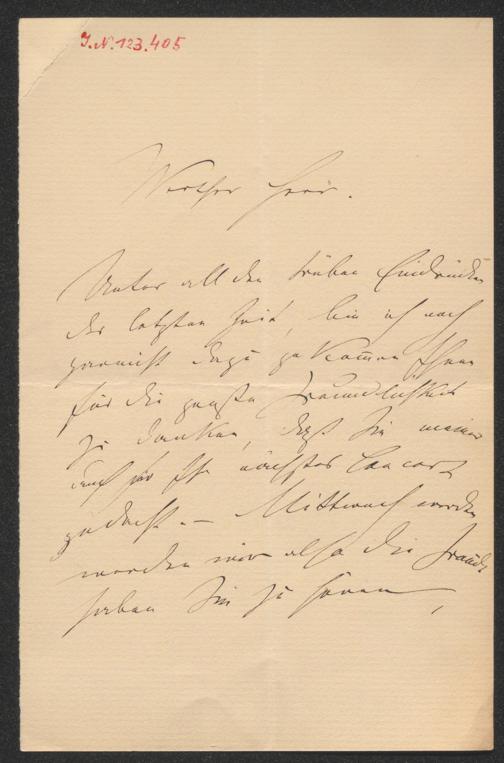 J.N. 123.405
Werther Herr.
Unter all den trüben Eindrücken
der letzten Zeit, bin ich noch
garnicht dazu gekommen Ihnen
für die große Freundlichkeit
zu danken, daß Sie meiner
auch für Ihr nächstes Concert
gedacht. – Mittwoch
werden wir also die Freude
haben Sie zu hören,